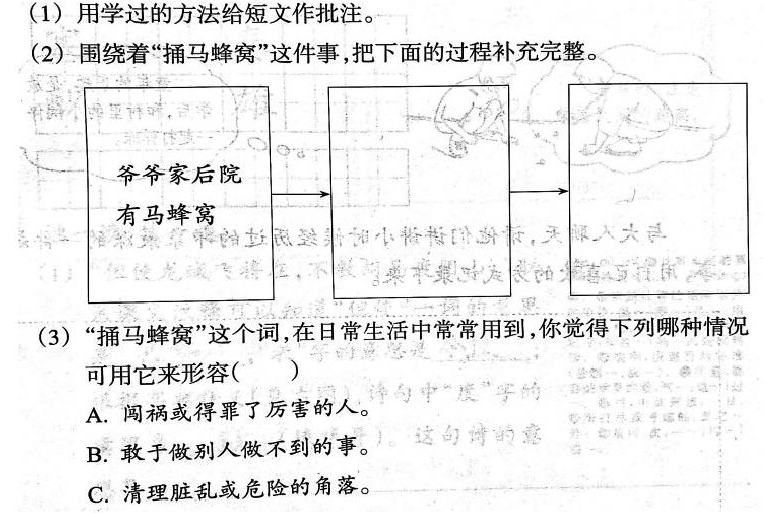 (1) 用学过的方法给短文作批注。
(2) 围绕着“捅马蜂窝”这件事,把下面的过程补充完整。
爷爷家后院
有马蜂窝
(3) “捅马蜂窝”这个词,在日常生活中常常用到,你觉得下列哪种情况
可用它来形容(  )
A. 闯祸或得罪了厉害的人。
B. 敢于做别人做不到的事。
C. 清理脏乱或危险的角落。